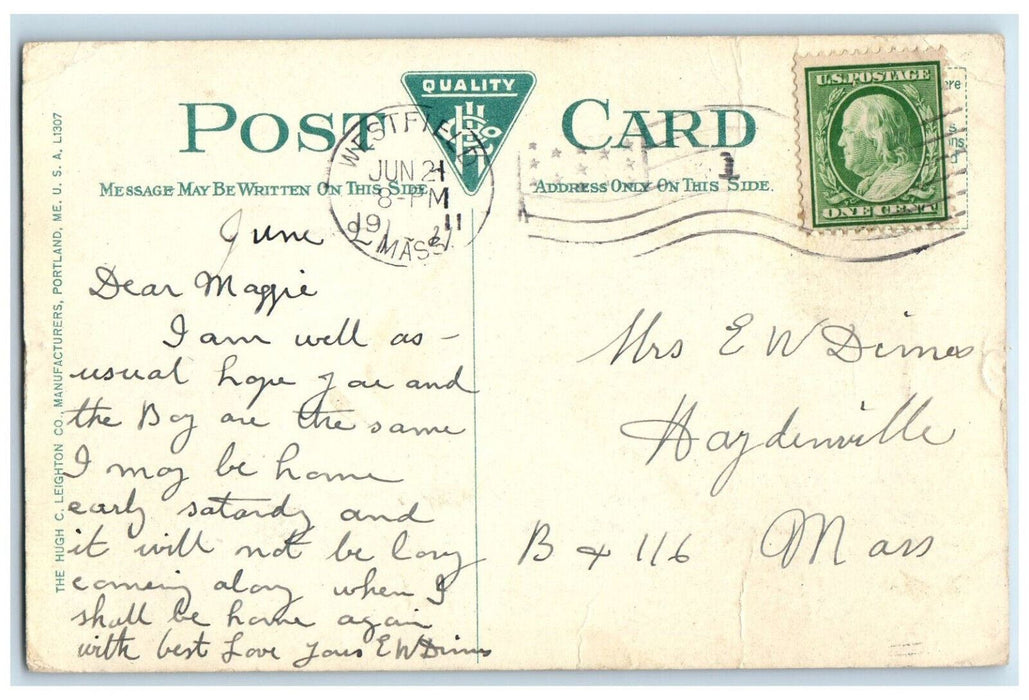 POST CARD
QUALITY
MESSAGE MAY BE WRITTEN ON THIS SIDE
ADDRESS ONLY ON THIS SIDE.
WESTFIELD
JUN 21
8-PM
1911
MASS.
1
U.S. POSTAGE
ONE CENT
THE HUGH C. LEIGHTON CO., MANUFACTURERS, PORTLAND, ME. U. S. A. L1307
June
Dear Maggie
I am well as-
usual hope you and
the Boy are the same
I may be home
early satardy and
it will not be long
comeing along when I
shall be home again
with best Love yours E W Dimes
Mrs E W Dimes
Haydenville
B + 116 Mass